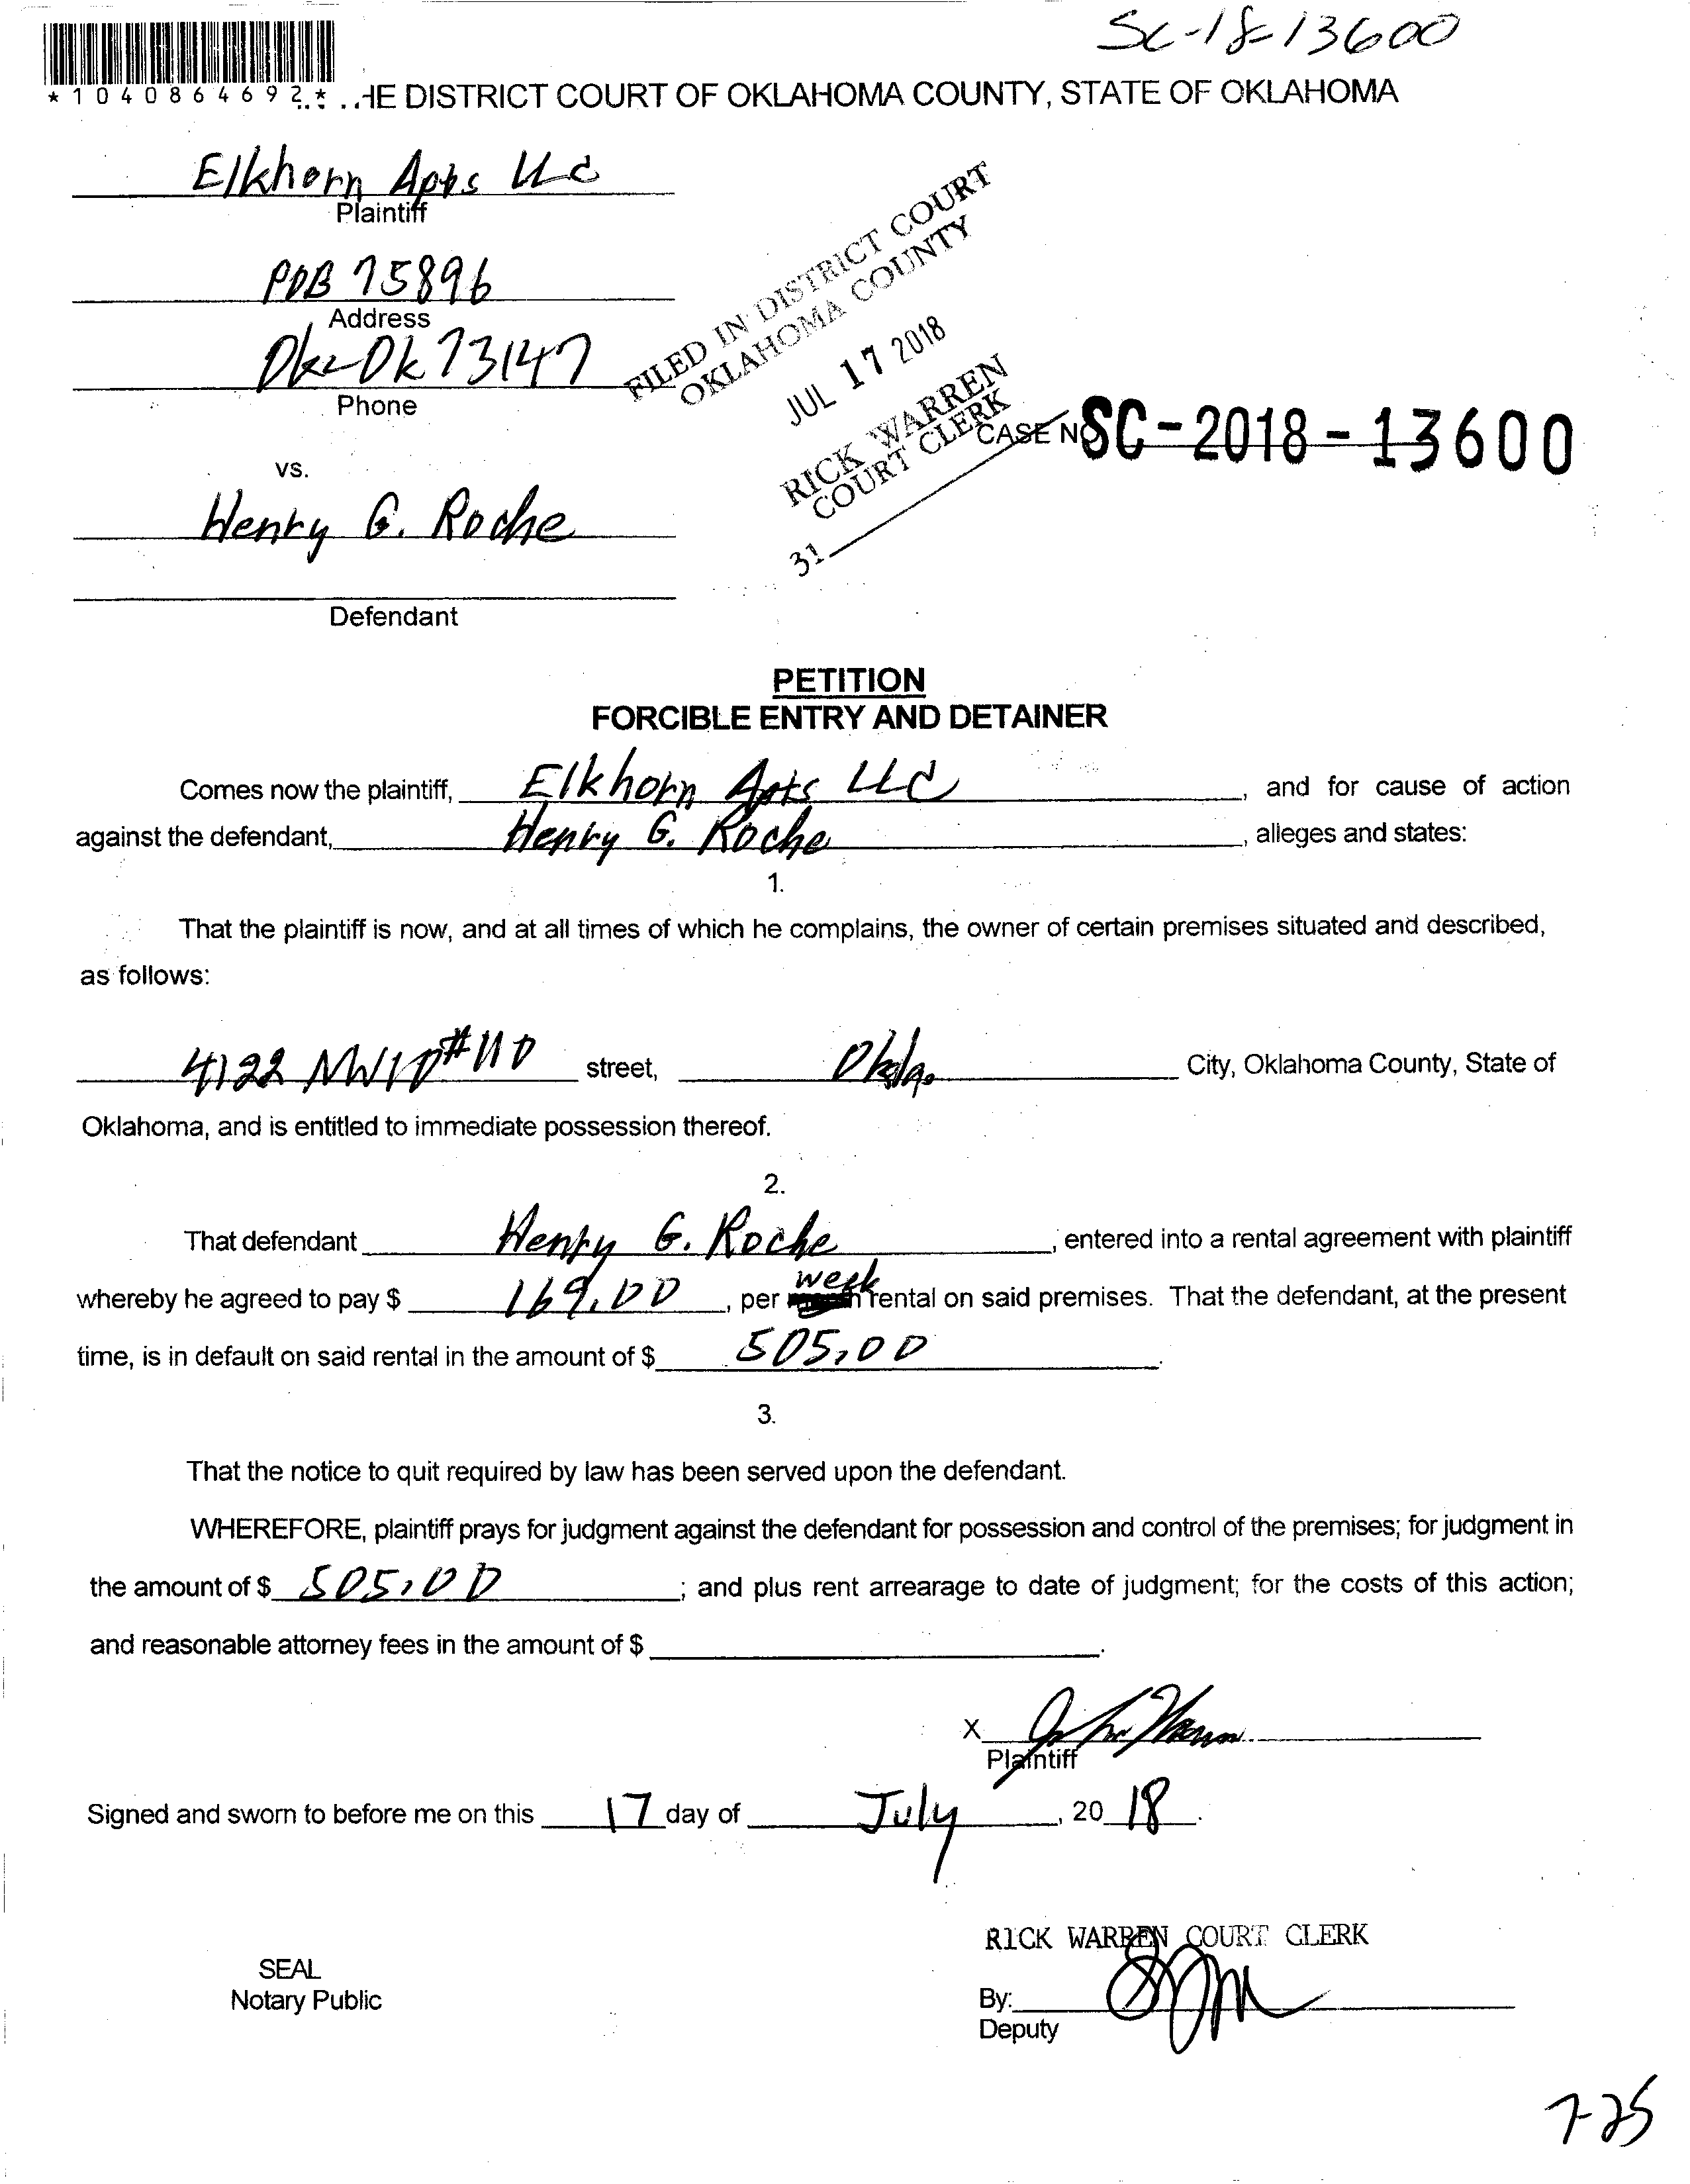 SC-18-13600
*1040864692* HE DISTRICT COURT OF OKLAHOMA COUNTY, STATE OF OKLAHOMA
Elkhorn Apts LLC
Plaintiff
POB 75896
Address
Okc Ok 73147
Phone
FILED IN DISTRICT COURT
OKLAHOMA COUNTY
JUL 17 2018
RICK WARREN
COURT CLERK
31
CASE NO SC-2018-13600
vs.
Henry G. Roche
Defendant
PETITION
FORCIBLE ENTRY AND DETAINER
Comes now the plaintiff, Elkhorn Apts LLC, and for cause of action
against the defendant, Henry G. Roche, alleges and states:
1.
That the plaintiff is now, and at all times of which he complains, the owner of certain premises situated and described,
as follows:
4122 NW10 #110 street, Okla. City, Oklahoma County, State of
Oklahoma, and is entitled to immediate possession thereof.
2.
That defendant Henry G. Roche, entered into a rental agreement with plaintiff
whereby he agreed to pay $ 169.00, per week rental on said premises. That the defendant, at the present
time, is in default on said rental in the amount of $ 505,00.
3.
That the notice to quit required by law has been served upon the defendant.
WHEREFORE, plaintiff prays for judgment against the defendant for possession and control of the premises; for judgment in
the amount of $ 505,00; and plus rent arrearage to date of judgment; for the costs of this action;
and reasonable attorney fees in the amount of $ .
X
Plaintiff
Signed and sworn to before me on this 17 day of July, 20 18.
RICK WARREN COURT CLERK
SEAL
Notary Public
By:
Deputy
7-25